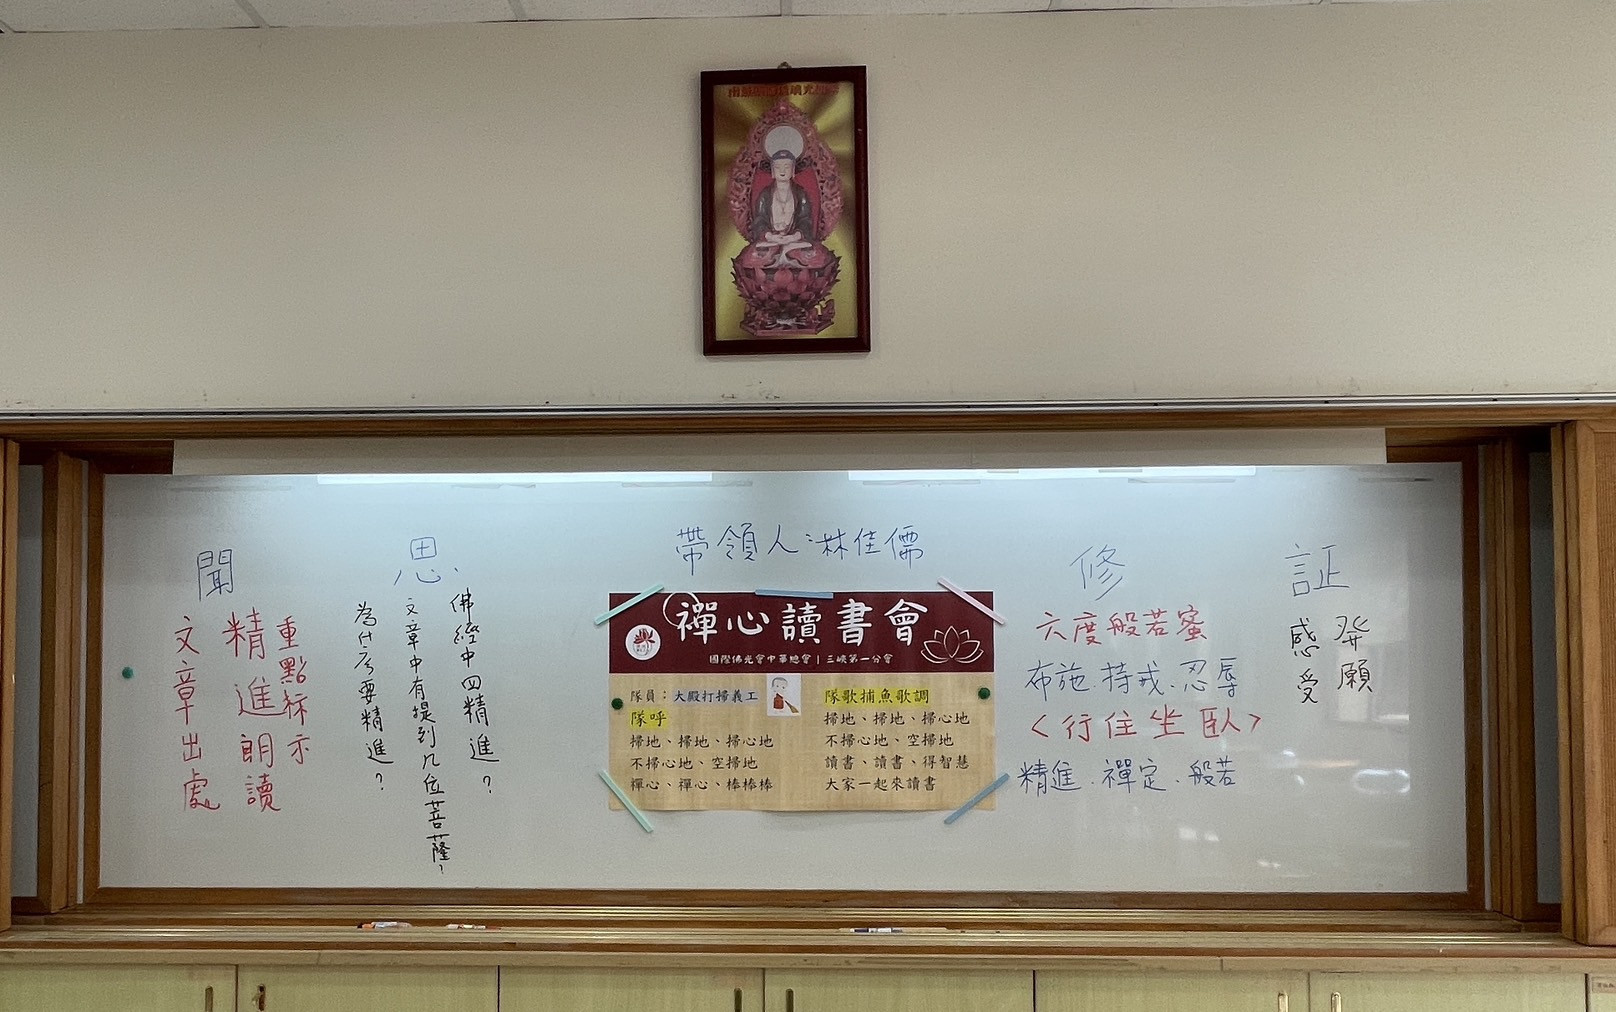 帶領人:淋佳儒
聞
重點标示
精進朗讀
文章出處
思
佛經中四精進?
文章中有提到几位菩薩?
為什么要精進?
禪心讀書會
國際佛光會中華總會 | 三峽第一分會
隊員:大殿打掃義工
隊呼
掃地、掃地、掃心地
不掃心地、空掃地
禪心、禪心、棒棒棒
隊歌捕魚歌調
掃地、掃地、掃心地
不掃心地、空掃地
讀書、讀書、得智慧
大家一起來讀書
修
六度般若蜜
布施.持戒.忍辱
<行住坐臥>
精進.禪定.般若
証
發願
感受